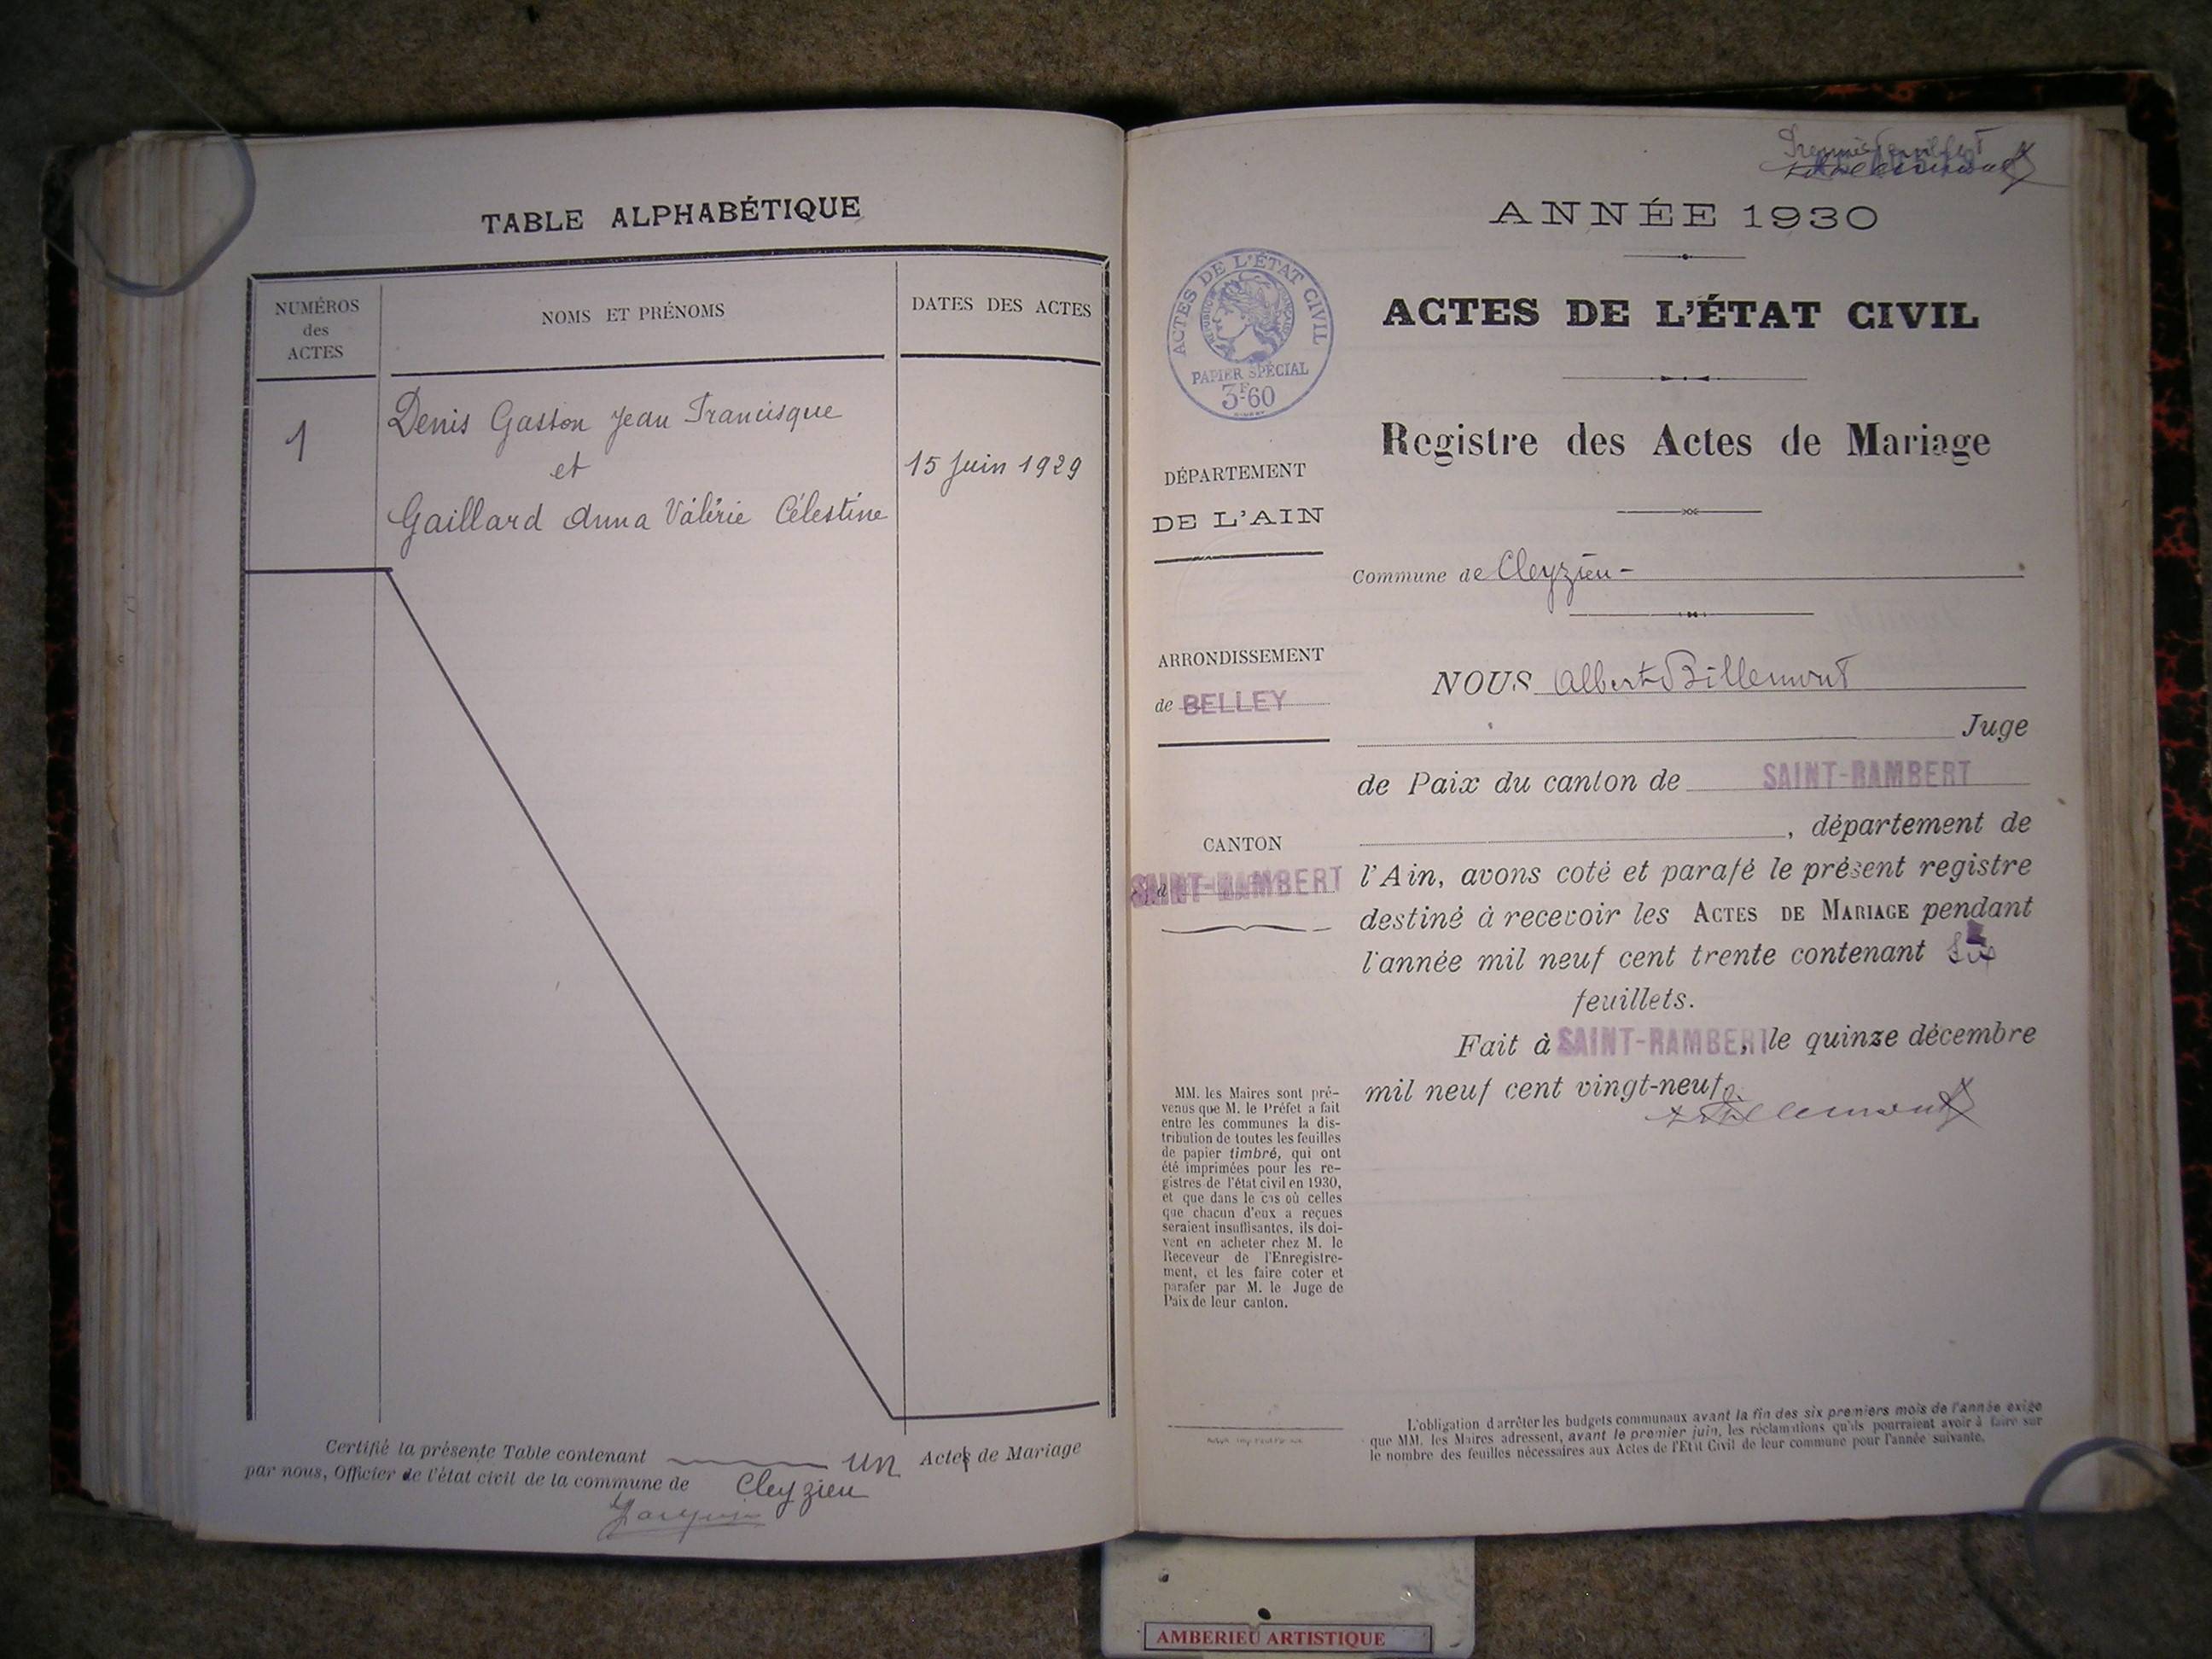 TABLE ALPHABÉTIQUE
NUMÉROS
des
ACTES
NOMS ET PRÉNOMS
DATES DES ACTES
1
Denis Gaston Jean Francisque
et
Gaillard Anna Valérie Célestine
15 Juin 1929
Certifié la présente Table contenant un Actes de Mariage
par nous, Officier de l'état civil de la commune de Cleyzieu
Premier feuillet
ANNÉE 1930
ACTES DE L'ÉTAT CIVIL
RÉPUBLIQUE FRANÇAISE
PAPIER SPÉCIAL
3F60
ACTES DE L'ÉTAT CIVIL
Registre des Actes de Mariage
DÉPARTEMENT
DE L'AIN
Commune de Cleyzieu -
ARRONDISSEMENT
de BELLEY
CANTON
SAINT-RAMBERT
NOUS Albert Billemont
Juge
de Paix du canton de SAINT-RAMBERT
, département de
l'Ain, avons coté et parafé le présent registre
destiné à recevoir les ACTES DE MARIAGE pendant
l'année mil neuf cent trente contenant
feuillets.
Fait à SAINT-RAMBERT, le quinze décembre
mil neuf cent vingt-neuf.
Billemont
MM. les Maires sont pré-
venus que M. le Préfet a fait
entre les communes la dis-
tribution de toutes les feuilles
de papier timbré, qui ont
été imprimées pour les re-
gistres de l'état civil en 1930,
et que dans le cas où celles
que chacun d'eux a reçues
seraient insuffisantes, ils doi-
vent en acheter chez M. le
Receveur de l'Enregistre-
ment, et les faire coter et
parafer par M. le Juge de
Paix de leur canton.
L'obligation d'arrêter les budgets communaux avant la fin des six premiers mois de l'année exige
que MM. les Maires adressent, avant le premier juin, les réclamations qu'ils pourraient avoir à faire sur
le nombre des feuilles nécessaires aux Actes de l'Etat Civil de leur commune pour l'année suivante.
AMBERIEU ARTISTIQUE